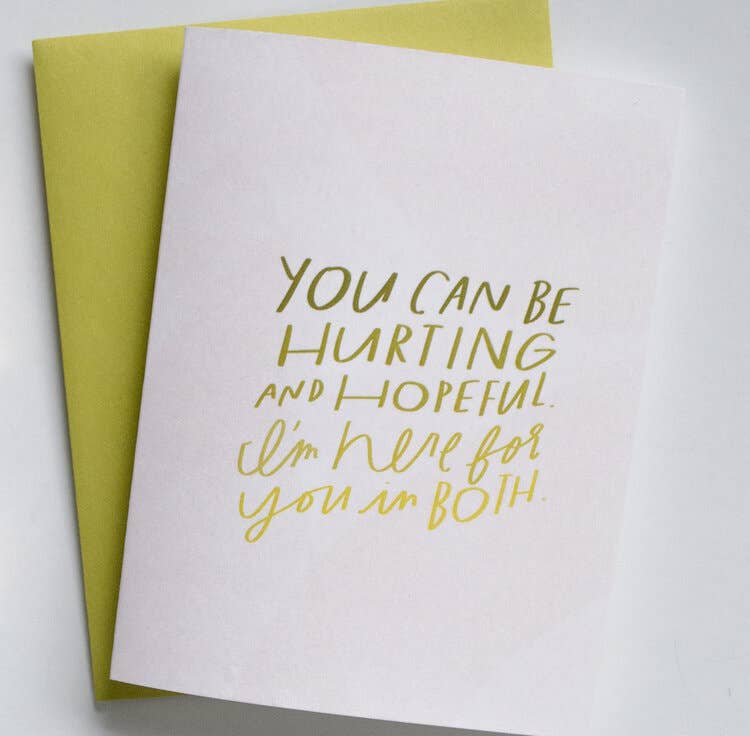 YOU CAN BE
HURTING
AND HOPEFUL.
I'm here for
you in BOTH.